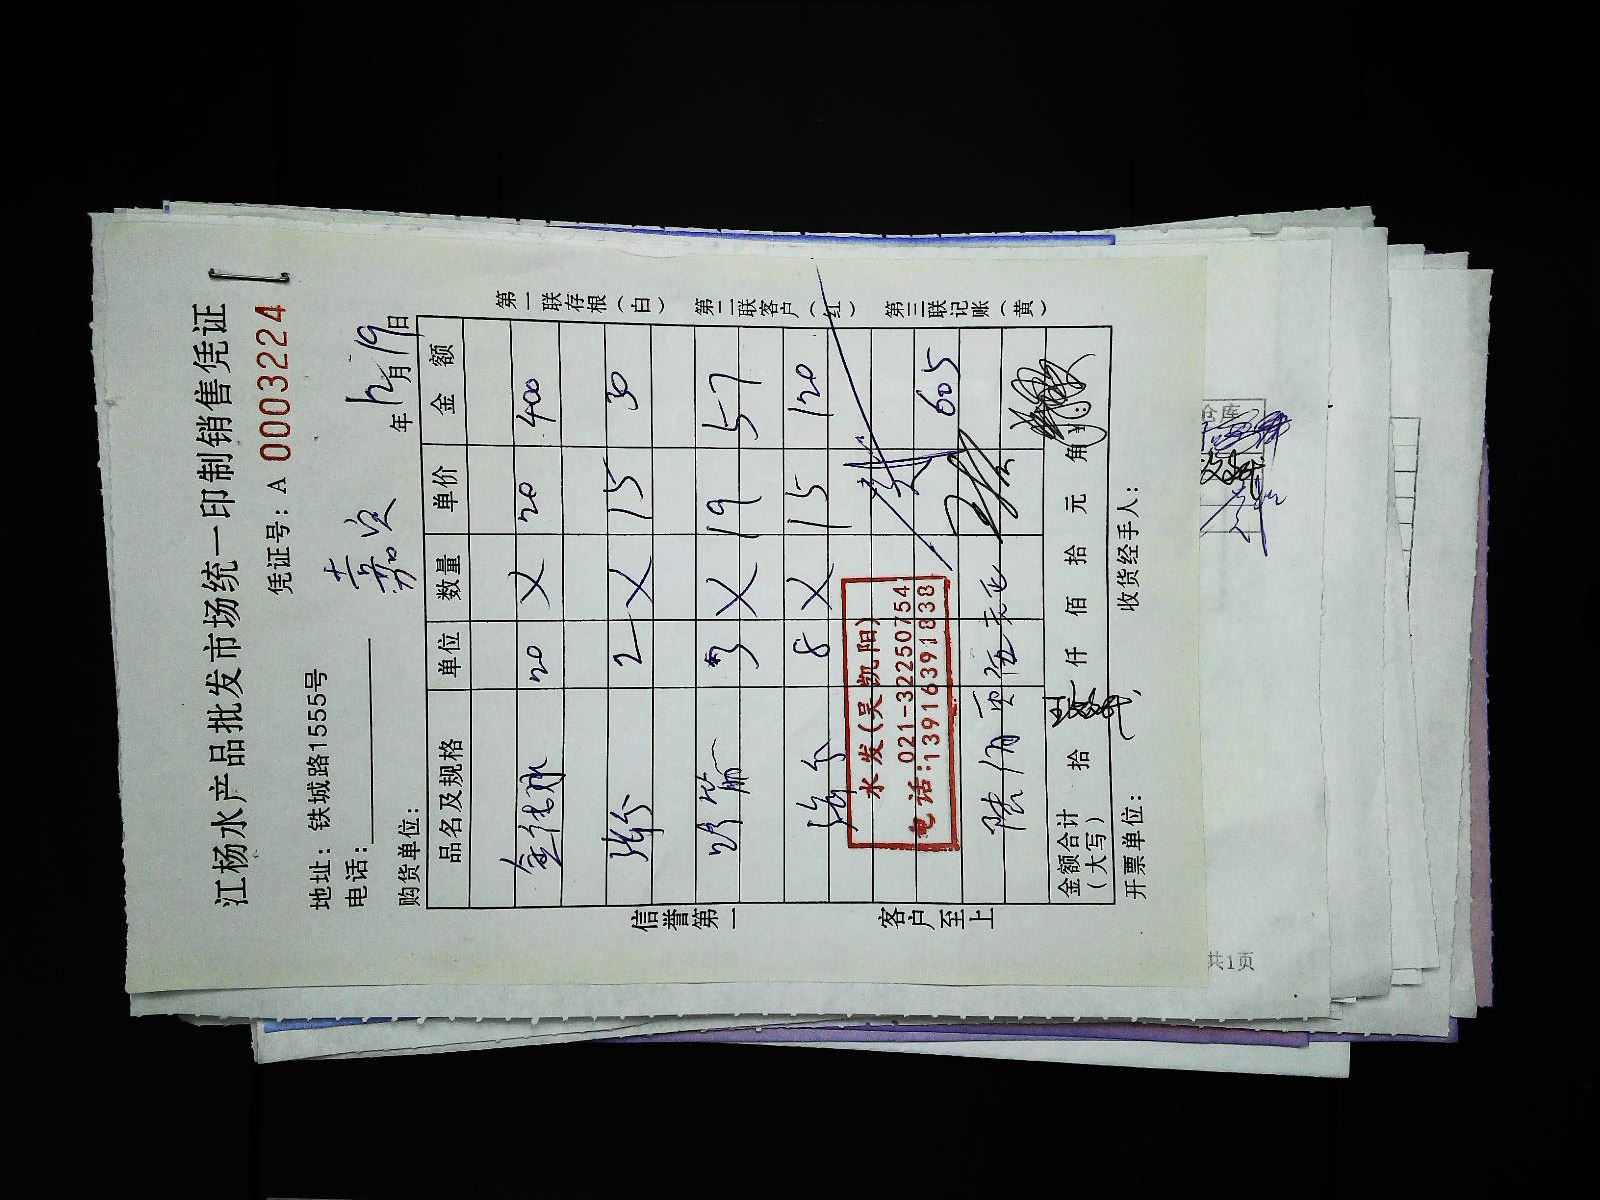 江杨水产品批发市场统一印制销售凭证
凭证号：A 0003224
地址：铁城路15555号
电话：
嘉定
年 12月19日
购货单位：
品名及规格 单位 数量 单价 金额
20 × 20 400
2 × 15 30
3 × 19 57
8 × 15 120
605
水发(吴凯阳)
电话：021-32250754
13916391838
陆佰另伍元正
金额合计（大写） 拾 仟 佰 拾 元 角
开票单位： 收货经手人：
信誉第一 客户至上
第一联存根（白） 第二联客户（红） 第三联记账（黄）
仓库
共1页